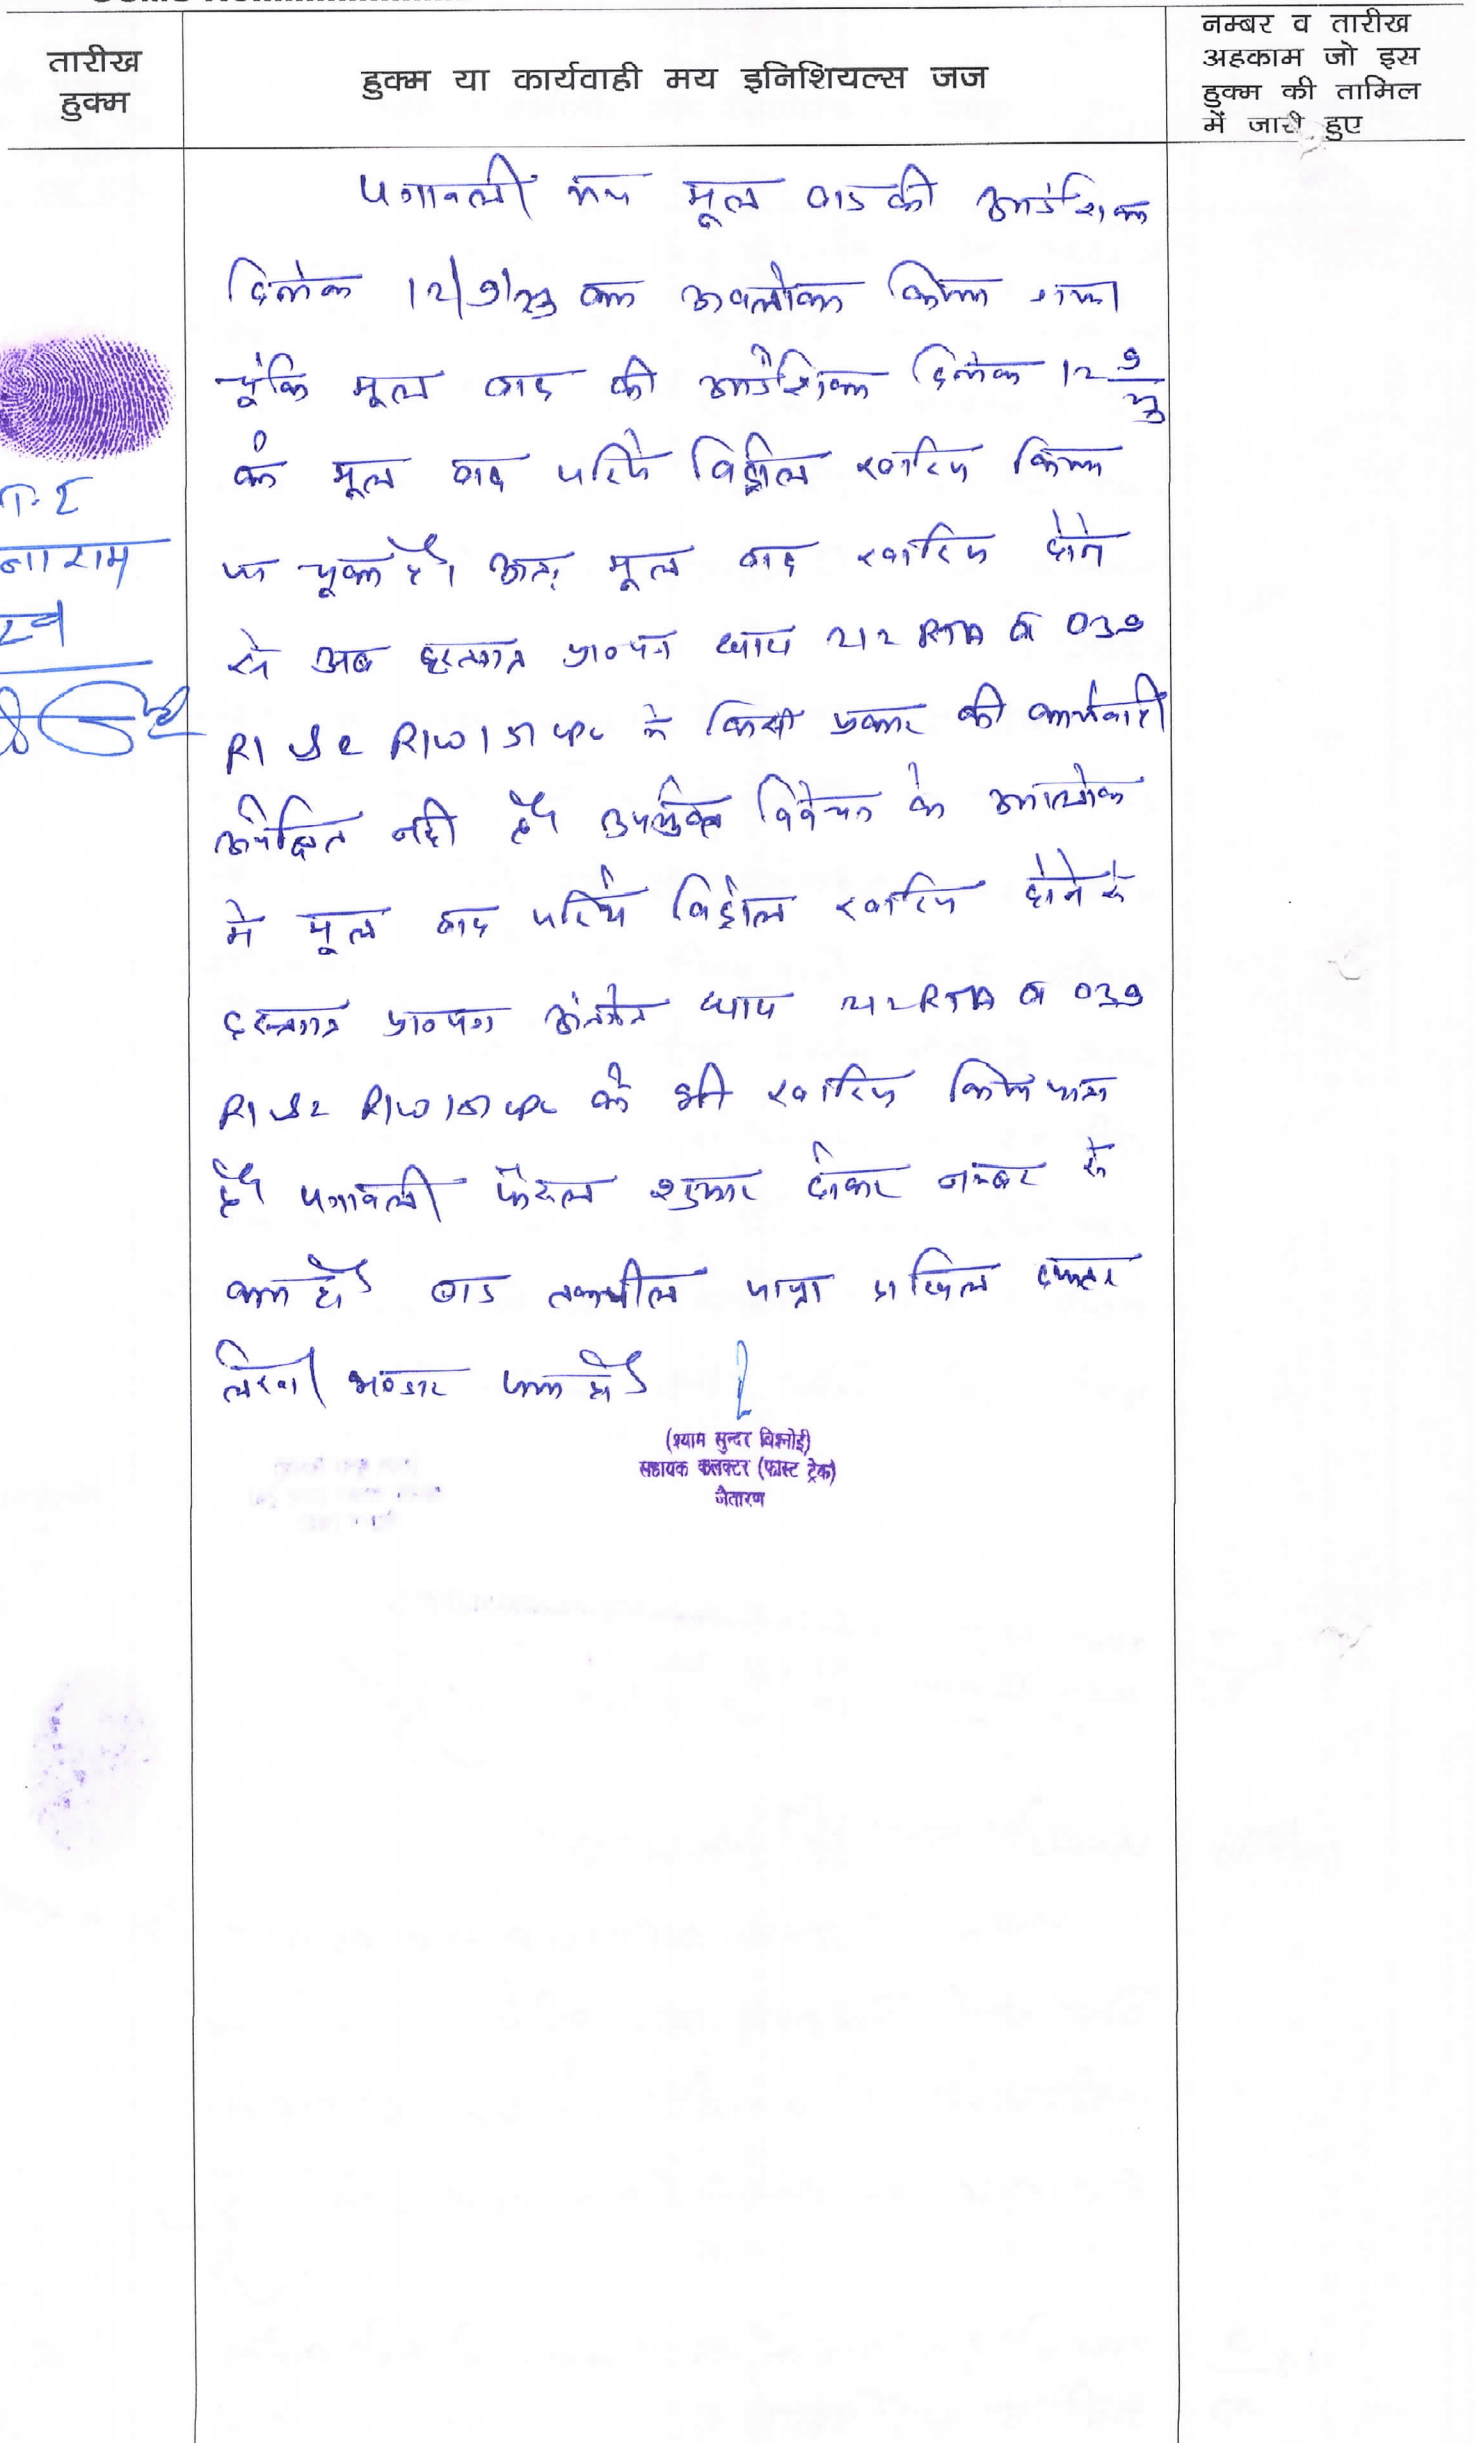 तारीख
हुक्म
हुक्म या कार्यवाही मय इनिशियल्स जज
नम्बर व तारीख
अहकाम जो इस
हुक्म की तामिल
में जारी हुए
पत्रावली मय मूल वाद की आदेशिका
दिनांक 12/9/23 का अवलोकन किया गया
चूंकि मूल वाद की आदेशिका दिनांक 12 9/23
को मूल वाद जरिये विड्रोल खारिज किया
जा चुका है। अतः मूल वाद खारिज होने
से अब हस्तगत प्रा०पत्र धारा 212 RTA व 039
R1 व 2 R/W 151 CPC में किसी प्रकार की कार्यवाही
अपेक्षित नही है। उपर्युक्त विवेचन के आलोक
मे मूल वाद जरिये विड्रोल खारिज होने से
हस्तगत प्रा०पत्र अंतर्गत धारा 212 RTA व 039
R1 व 2 R/W 151 CPC को भी खारिज किया जाता
है। पत्रावली फैसल शुमार होकर नम्बर से
कम हो बाद तकमील दाखिल दफ्तर
हो
नाराम
(श्याम सुन्दर बिश्नोई)
सहायक कलक्टर (फास्ट ट्रेक)
जैतारण